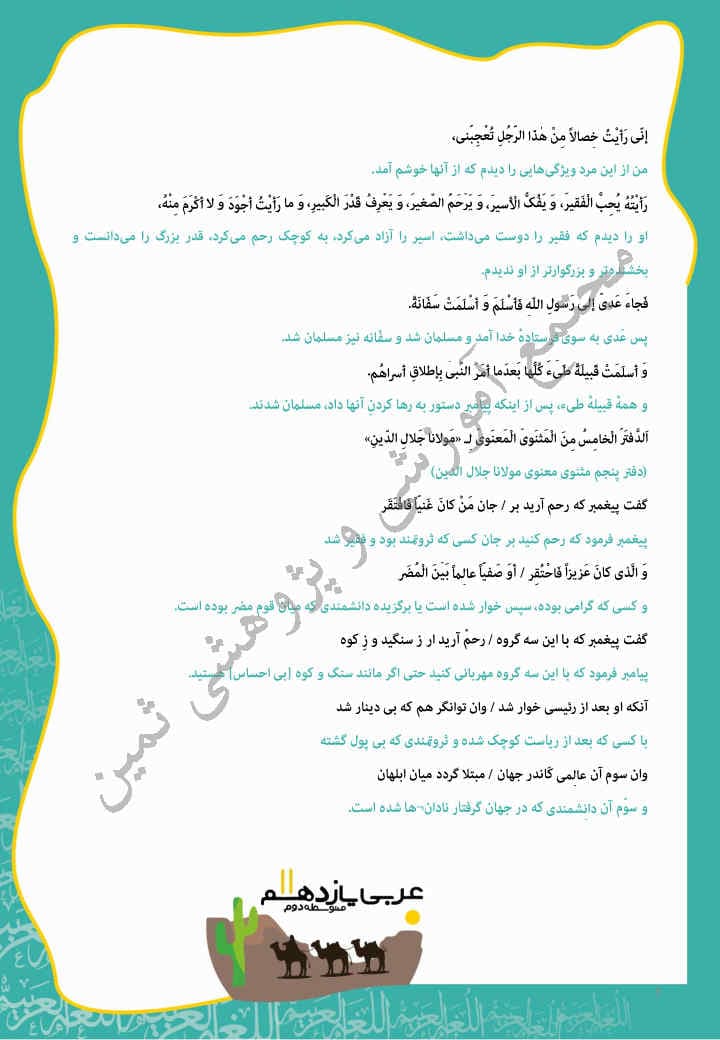 إنّی رَأَیْتُ خِصالاً مِنْ هٰذَا الرَّجُلِ تُعْجِبُنی،
من از این مرد ویژگی‌هایی را دیدم که از آنها خوشم آمد.
رَأَیْتُهُ یُحِبُّ الْفَقیرَ، وَ یَفُکُّ الْأسیرَ، وَ یَرْحَمُ الصَّغیرَ، وَ یَعْرِفُ قَدْرَ الْکَبیرِ، وَ ما رَأَیْتُ أجْوَدَ وَ لا أکْرَمَ مِنْهُ،
او را دیدم که فقیر را دوست می‌داشت، اسیر را آزاد می‌کرد، به کوچک رحم می‌کرد، قدر بزرگ را می‌دانست و
بخشنده‌تر و بزرگوارتر از او ندیدم.
فَجاءَ عَدیّ إلیٰ رَسولِ اللهِ فَأسْلَمَ وَ أسْلَمَتْ سَفّانَةُ.
پس عَدی به سوی فرستادهٔ خدا آمد و مسلمان شد و سفّانه نیز مسلمان شد.
وَ أسلَمَتْ قَبیلَةُ طَیِّءَ کُلُّها بَعدَما أمَرَ النَّبیّ بِإطلاقِ أسراهُم.
و همهٔ قبیلهٔ طیء، پس از اینکه پیامبر دستور به رها کردنِ آنها داد، مسلمان شدند.
اَلدَّفتَرُ الْخامِسُ مِنَ الْمَثنَویّ الْمَعنَویّ لِـ «مَولانا جَلالِ الدّینِ»
(دفتر پنجم مثنوی معنوی مولانا جلال الدین)
گفت پیغمبر که رحم آرید بر / جان مَنْ کانَ غَنیّاً فَافْتَقَر
پیغمبر فرمود که رحم کنید بر جان کسی که ثروتمند بود و فقیر شد
وَ الَّذی کانَ عَزیزاً فَاحْتُقِر / أوْ صَفیّاً عالِماً بَیْنَ الْمُضَر
و کسی که گرامی بوده، سپس خوار شده است یا برگزیده دانشمندی که میان قوم مضر بوده است.
گفت پیغمبر که با این سه گروه / رحمْ آرید ار ز سنگید و زِ کوه
پیامبر فرمود که با این سه گروه مهربانی کنید حتی اگر مانند سنگ و کوه [بی احساس] هستید.
آنکه او بعد از رئیسی خوار شد / وان توانگر هم که بی دینار شد
با کسی که بعد از ریاست کوچک شده و ثروتمندی که بی پول گشته
وان سوم آن عالِمی کَاندر جهان / مبتلا گردد میان ابلهان
و سوّم آن دانِشمندی که در جهان گرفتار نادان¬ها شده است.
مجتمع آموزشی و پژوهشی ثمین
عربی یازدهم
متوسطه دوم